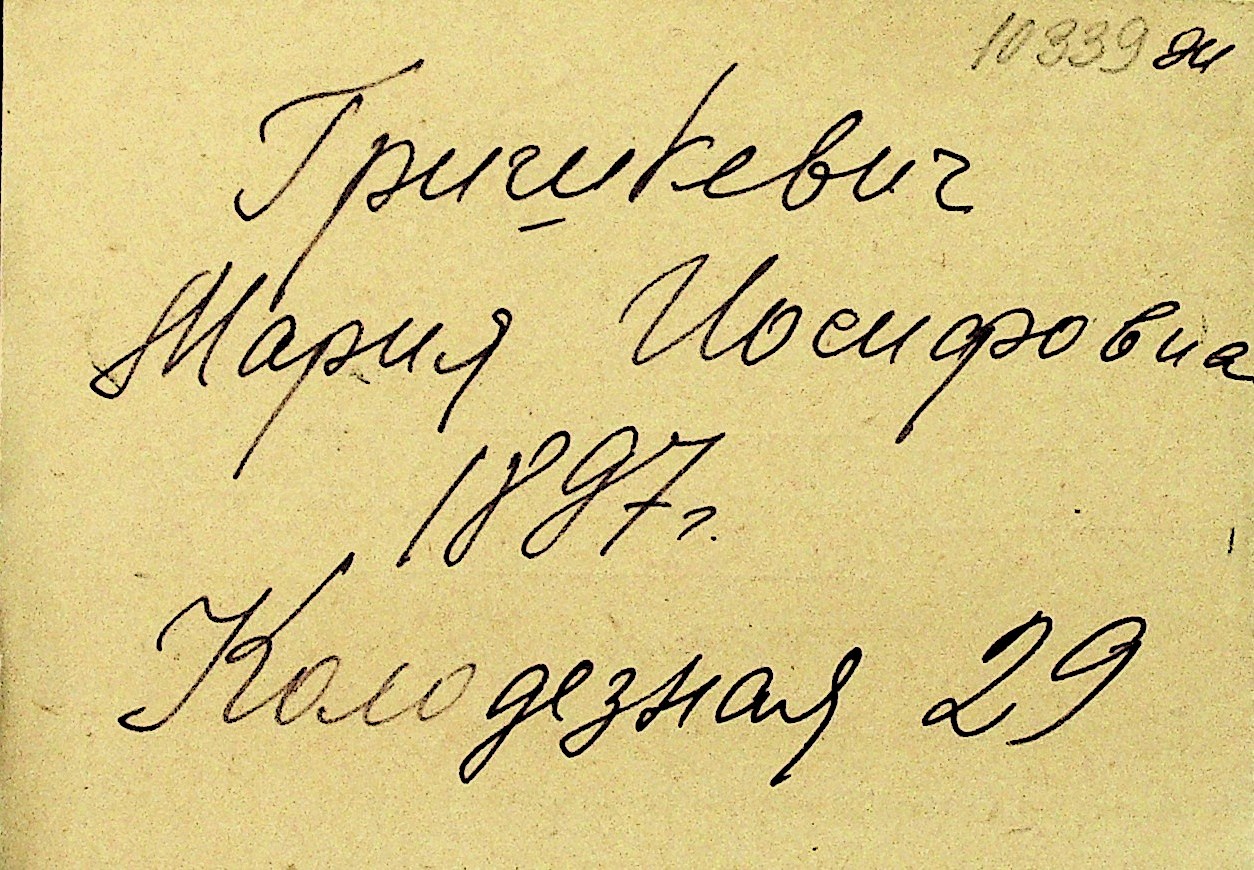 10339 ж
Гришкевич
Мария Иосифовна
1897 г.
Колодезная 29